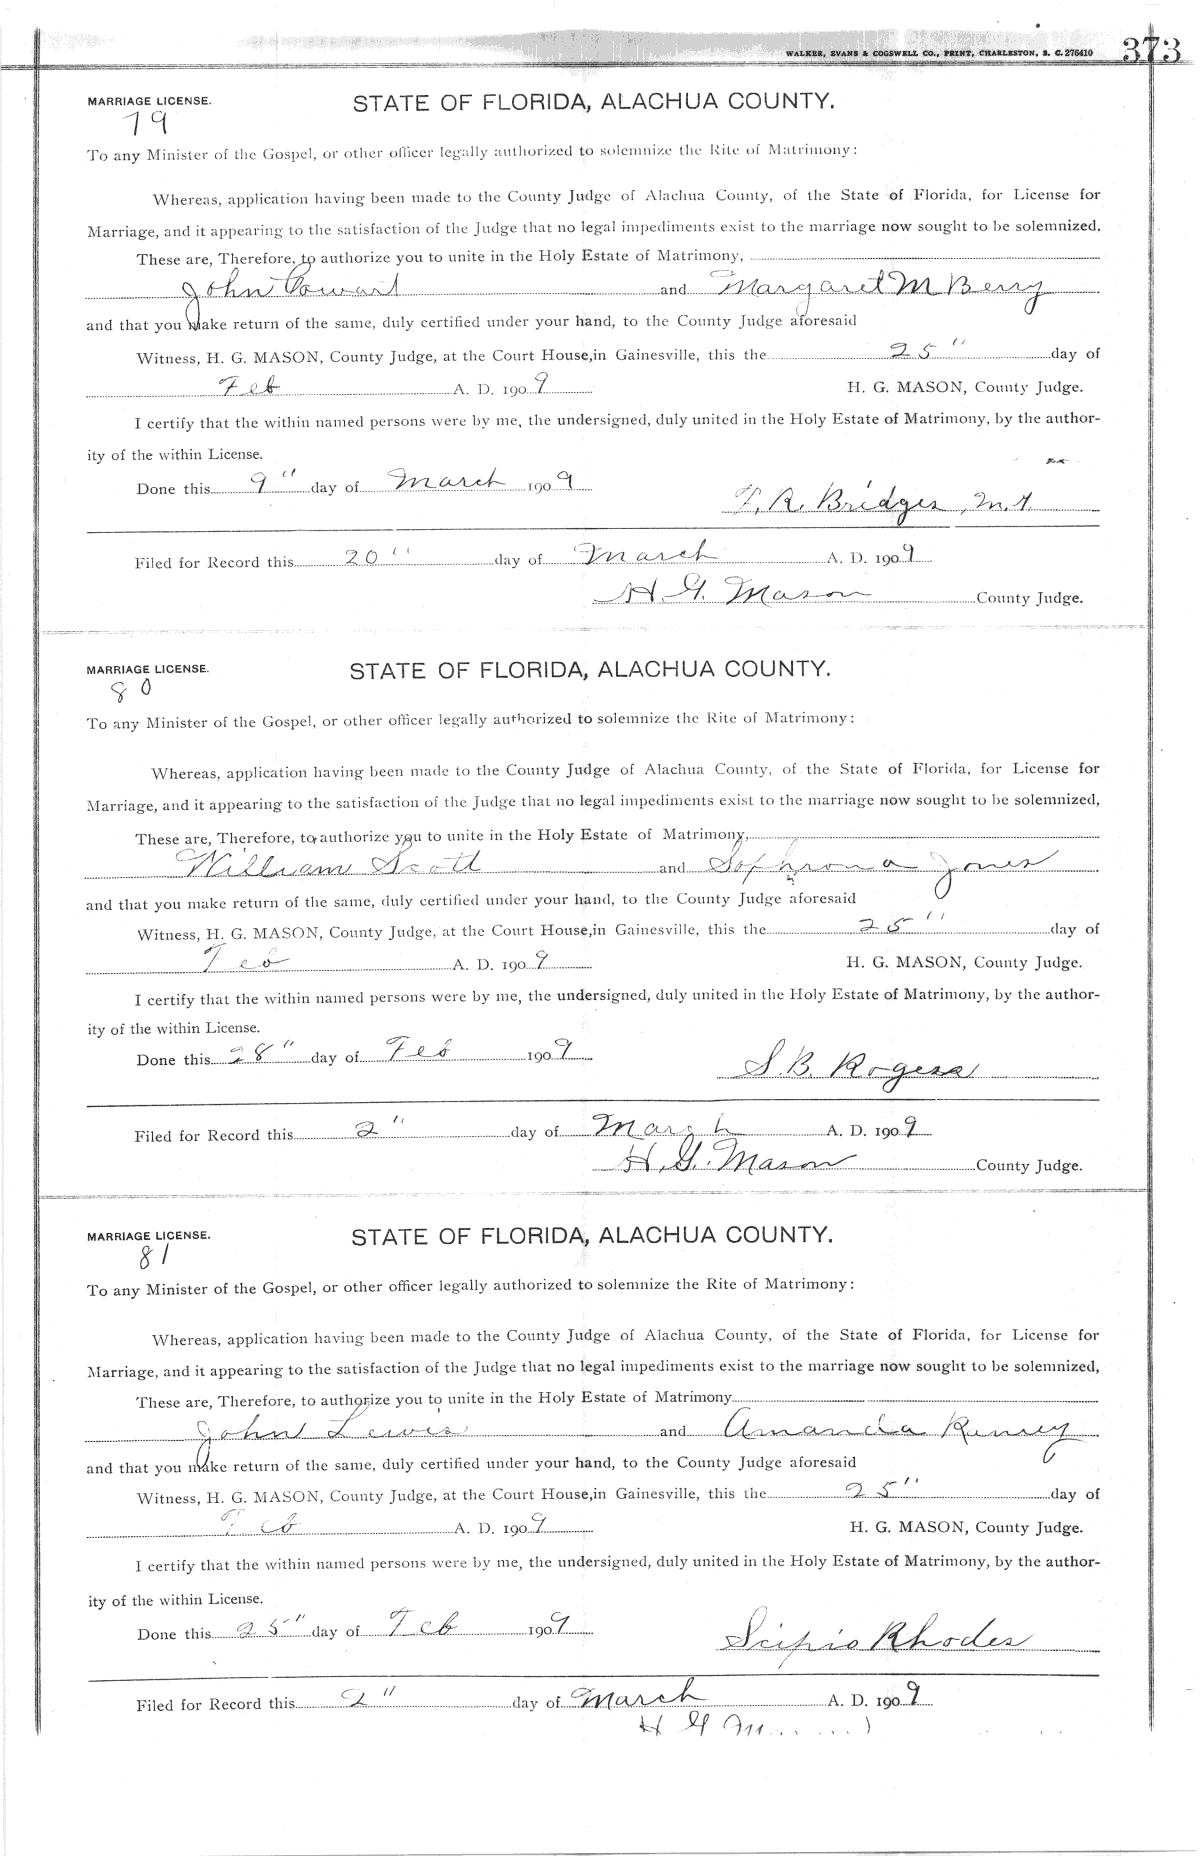 WALKER, EVANS & COGSWELL CO., PRINT, CHARLESTON, S. C. 276410 373
MARRIAGE LICENSE. STATE OF FLORIDA, ALACHUA COUNTY.
79
To any Minister of the Gospel, or other officer legally authorized to solemnize the Rite of Matrimony:
Whereas, application having been made to the County Judge of Alachua County, of the State of Florida, for License for
Marriage, and it appearing to the satisfaction of the Judge that no legal impediments exist to the marriage now sought to be solemnized,
These are, Therefore, to authorize you to unite in the Holy Estate of Matrimony,
John Cowart and Margaret M Berry
and that you make return of the same, duly certified under your hand, to the County Judge aforesaid
Witness, H. G. MASON, County Judge, at the Court House, in Gainesville, this the 25" day of
Feb A. D. 1909 H. G. MASON, County Judge.
I certify that the within named persons were by me, the undersigned, duly united in the Holy Estate of Matrimony, by the author-
ity of the within License.
Done this 9" day of March 1909
R. Bridges, M.G.
Filed for Record this 20" day of March A. D. 1909
H. G. Mason County Judge.
MARRIAGE LICENSE. STATE OF FLORIDA, ALACHUA COUNTY.
80
To any Minister of the Gospel, or other officer legally authorized to solemnize the Rite of Matrimony:
Whereas, application having been made to the County Judge of Alachua County, of the State of Florida, for License for
Marriage, and it appearing to the satisfaction of the Judge that no legal impediments exist to the marriage now sought to be solemnized,
These are, Therefore, to authorize you to unite in the Holy Estate of Matrimony,
William Scott and Sophrona Jones
and that you make return of the same, duly certified under your hand, to the County Judge aforesaid
Witness, H. G. MASON, County Judge, at the Court House, in Gainesville, this the 25" day of
Feb A. D. 1909 H. G. MASON, County Judge.
I certify that the within named persons were by me, the undersigned, duly united in the Holy Estate of Matrimony, by the author-
ity of the within License.
Done this 28" day of Feb 1909
S. B. Rogers
Filed for Record this 2" day of March A. D. 1909
H. G. Mason County Judge.
MARRIAGE LICENSE. STATE OF FLORIDA, ALACHUA COUNTY.
81
To any Minister of the Gospel, or other officer legally authorized to solemnize the Rite of Matrimony:
Whereas, application having been made to the County Judge of Alachua County, of the State of Florida, for License for
Marriage, and it appearing to the satisfaction of the Judge that no legal impediments exist to the marriage now sought to be solemnized,
These are, Therefore, to authorize you to unite in the Holy Estate of Matrimony
John Lewis and Amanda
and that you make return of the same, duly certified under your hand, to the County Judge aforesaid
Witness, H. G. MASON, County Judge, at the Court House, in Gainesville, this the 25" day of
Feb A. D. 1909 H. G. MASON, County Judge.
I certify that the within named persons were by me, the undersigned, duly united in the Holy Estate of Matrimony, by the author-
ity of the within License.
Done this 25" day of Feb 1909
Scipio Rhodes
Filed for Record this 2" day of March A. D. 1909
H G